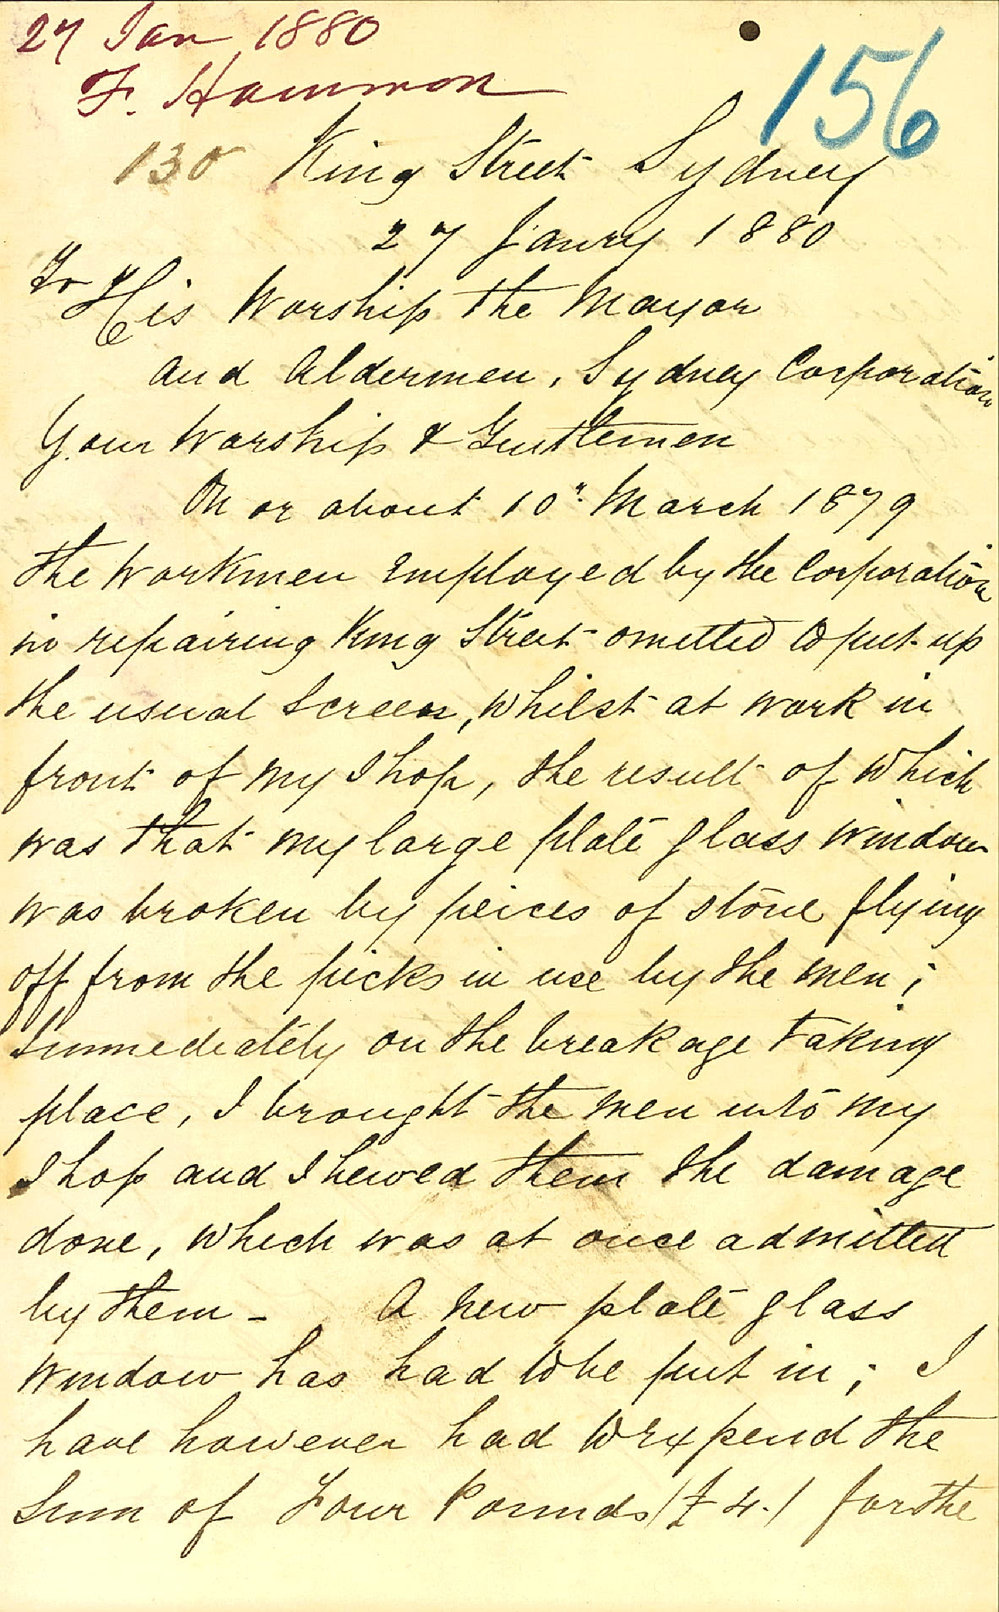 27 Jan 1880
F. Hammon
156
130 King Street Sydney
27 Janry 1880
To His Worship the Mayor
and Aldermen, Sydney Corporation
Your Worship & Gentlemen
On or about 10" March 1879
the Workmen Employed by the Corporation
in repairing King Street omitted to put up
the usual Screen, whilst at work in
front of my Shop, the result of which
was that my large plate glass window
was broken by peices of stone flying
off from the picks in use by the men;
Immediately on the breakage taking
place, I brought the men into my
Shop and Shewed them the damage
done, which was at once admitted
by them - A new plate glass
window has had to be put in; I
have however had to expend the
Sum of Four Pounds (£4.) for the